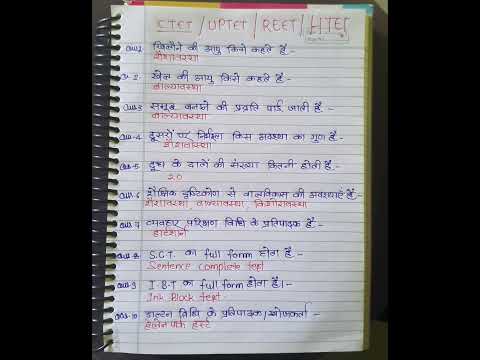 CTET / UPTET / REET / HTET
Que-1 खिलौने की आयु किसे कहते है:-
शैशावस्था
Que-2. खेल की आयु किसे कहते है:-
बाल्यावस्था
Que-3 समूह बनाने की प्रवृति पाई जाती है:-
बाल्यावस्था
Que-4 दूसरों पर निर्भरता किस अवस्था का गुण है:-
शैशावस्था
Que-5 दूध के दातों की संख्या कितनी होती है:-
20
Que-6 शैक्षिक दृष्टिकोण से बालविकास की अवस्थाएँ हैं:-
शैशावस्था, बाल्यावस्था, किशोरावस्था
Que-7 व्यवहार परिक्षण विधि के प्रतिपादक है:-
Que-8 S.C.T. का full form होता है:-
Sentence complete test
Que-9 I.B.T का full form होता है।-
Ink Block test
Que-10 डाल्टन विधि के प्रतिपादक/खोजकर्ता
हेलेन पार्क हर्स्ट